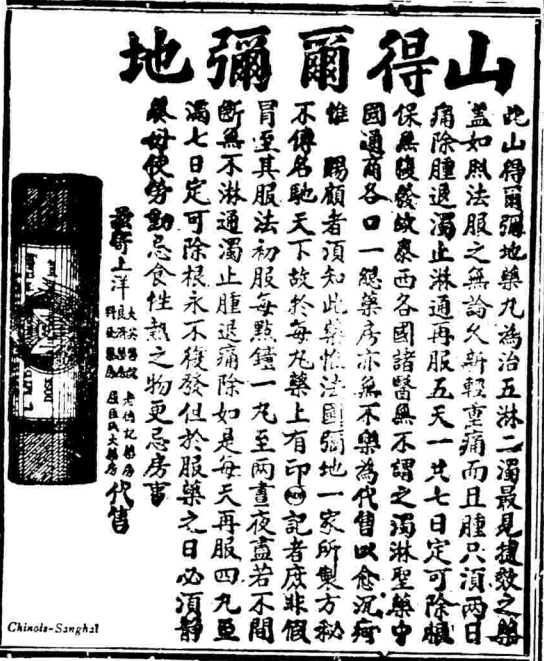 山得爾彌地
此山得爾彌地藥丸為治五淋二濁最見捷效之藥
蓋如照法服之無論久新輕重痛而且腫只須兩日
痛除腫退濁止淋通再服五天一共七日定可除根
保無復發故泰西各國諸醫無不謂之濁淋聖藥中
國通商各口一總藥房亦無不樂為代售以愈沉疴
惟 賜顧者須知此藥惟法國彌地一家所製方秘
不傳名馳天下故於每丸藥上有印記者庶非假
冒至其服法初服每點鐘一丸至兩晝夜盡若不間
斷無不淋通濁止腫退痛除如是每天再服四丸至
滿七日定可除根永不復發但於服藥之日必須靜
養毋使勞動忌食性熱之物更忌房事
上洋
老德記藥房
屈臣氏大藥房
代售
Chinois-Sanghai